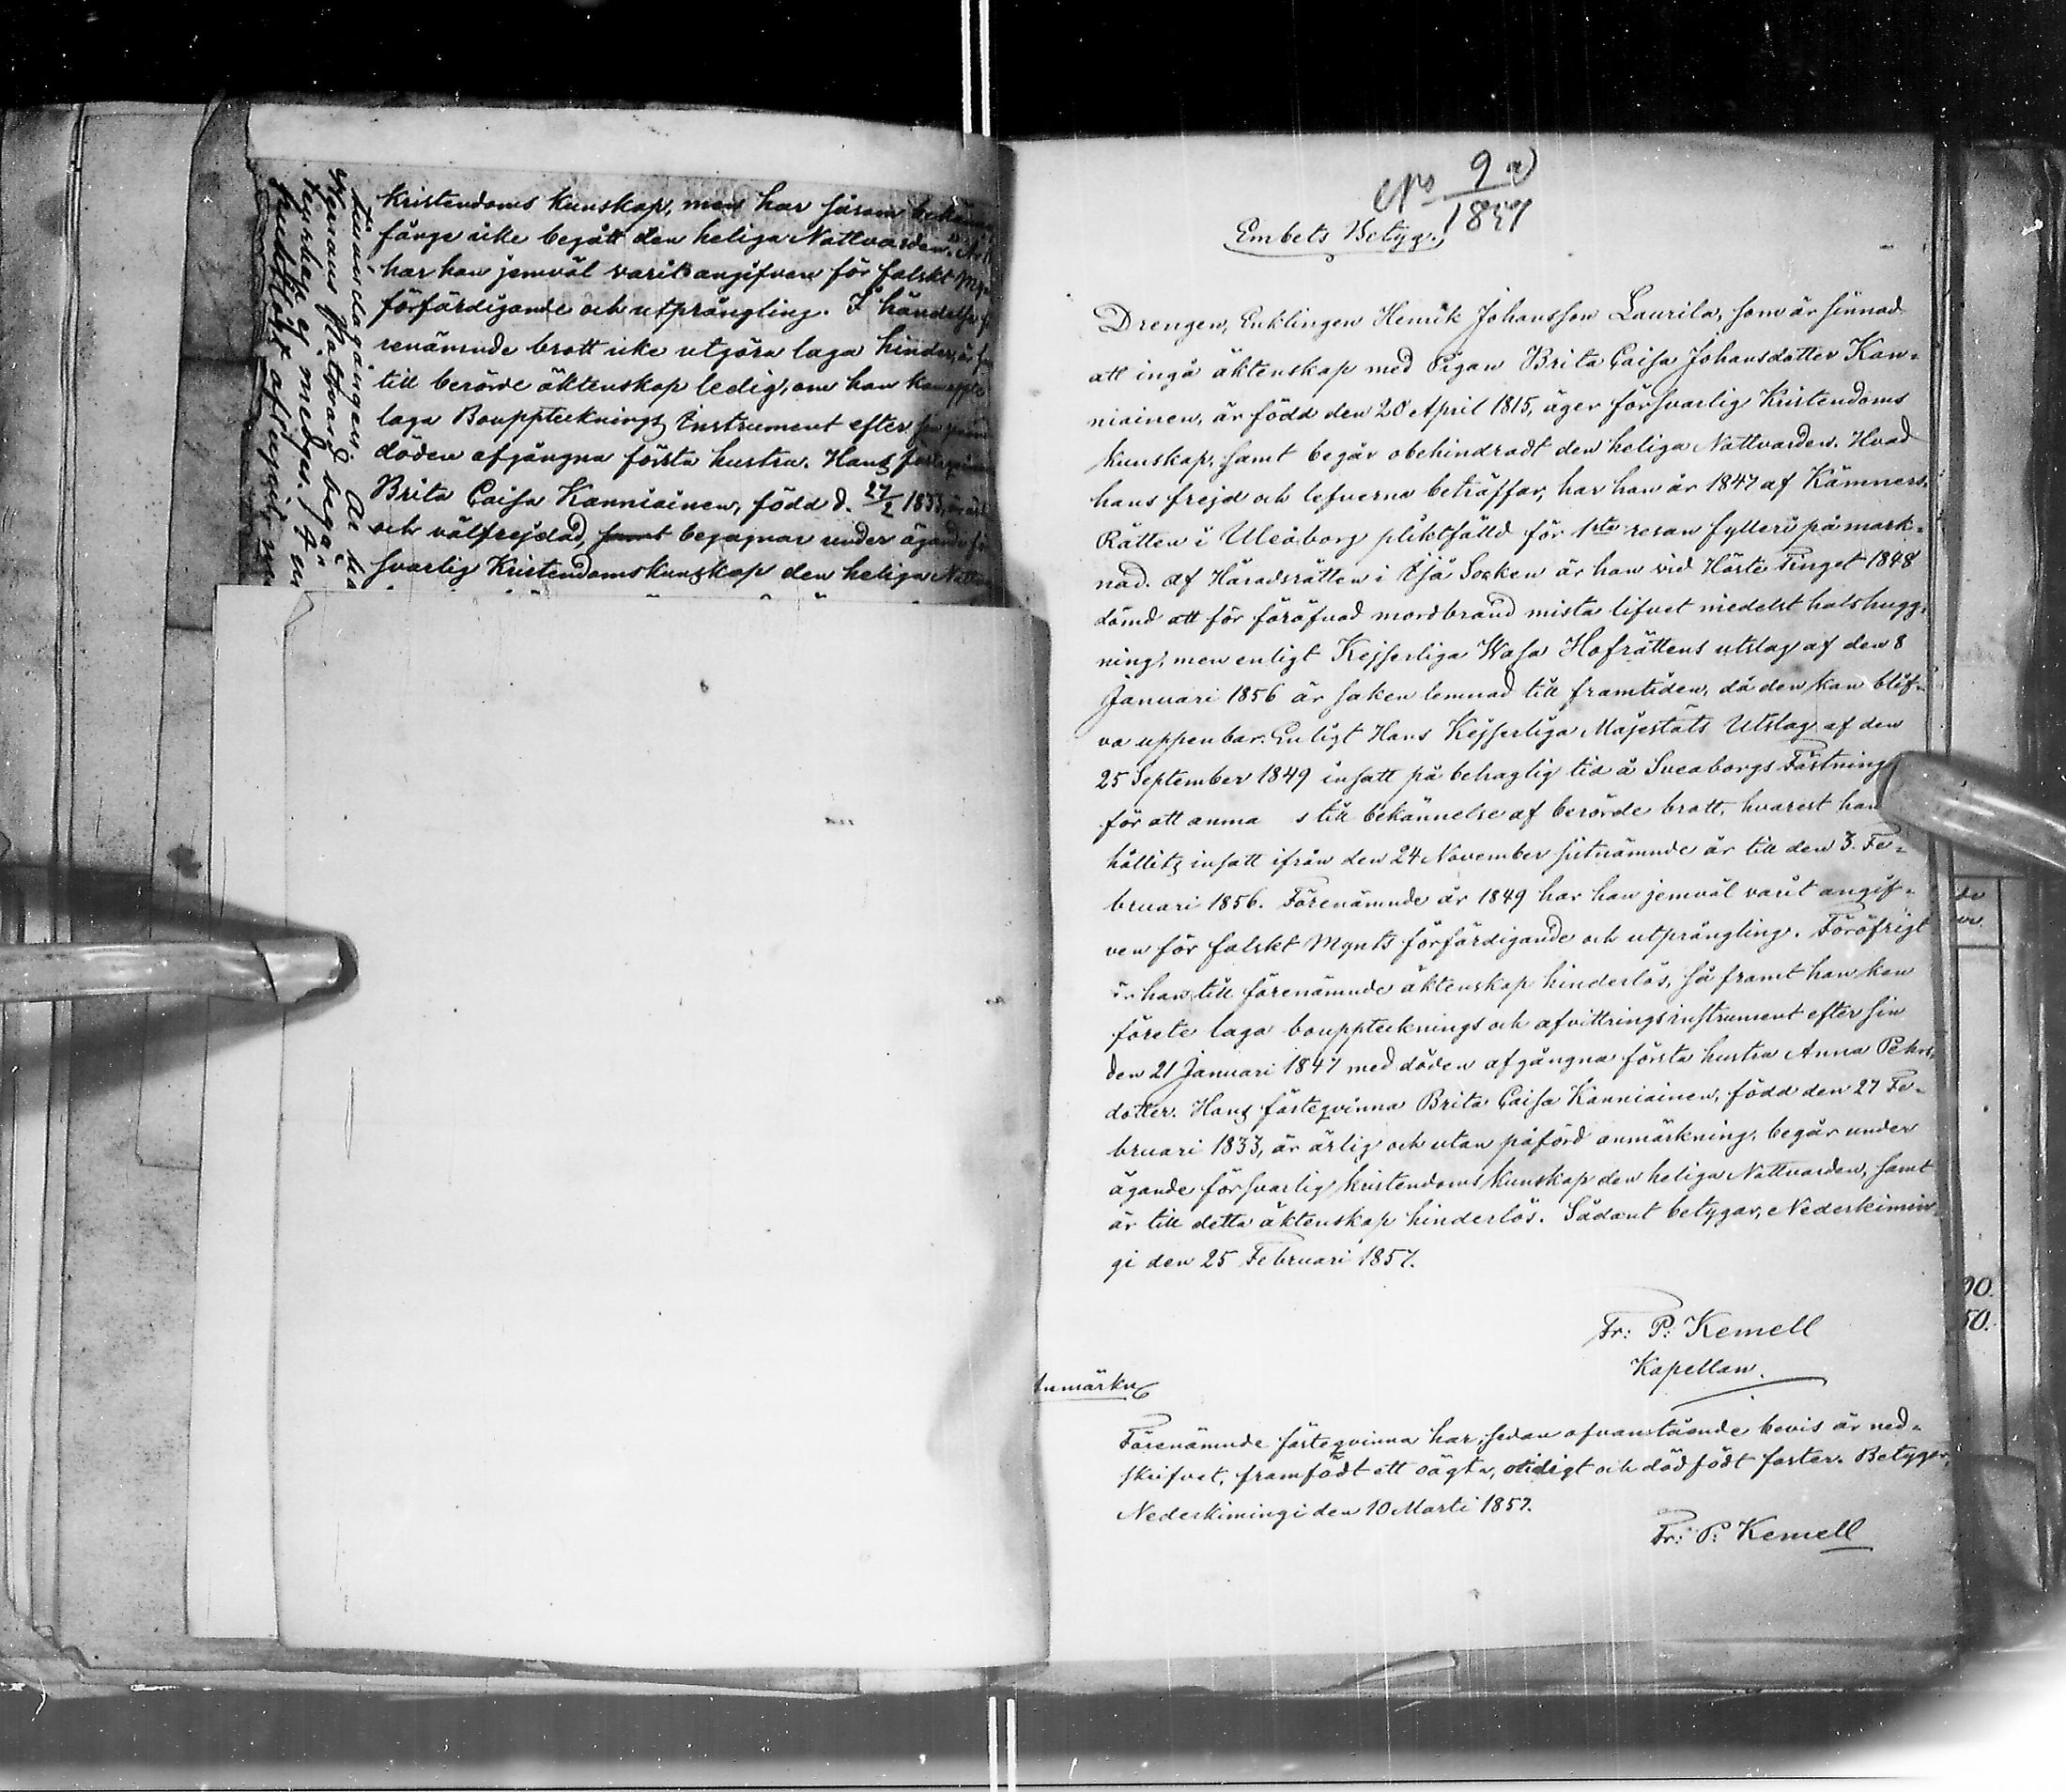 kristendoms kunskap, men har såsom
fånge icke begått den heliga Nattvarden.
har han jemväl varit angifven för falskt
förfärdigande och utprångling. I händelse
renämnde brott icke utgöra laga hinder, är
till berörde äktenskap ledig, om han kan
laga Bouppteknings Instrument efter
döden afgångna första hustru. Hans
Brita Caisa Kanniainen, född d. 27/2 1833,
och välfrejdad, samt begagnar under ägande
svarlig Kristendomskunskap den heliga
No 9 a
1857
Embets Betyg.
Drengen, Enklingen Henrik Johansson Laurila, som är sinnad
att ingå äktenskap med Pigan Brita Caisa Johansdotter Kan-
niainen, är född den 20 April 1815, äger försvarlig Kristendoms
kunskap, samt begår obehindradt den heliga Nattvarden. Hvad
hans frejd och lefverne beträffar, har han år 1847 af Kämners-
Rätten i Uleåborg pliktfälld för 1sta resan fylleri på mark-
nad. Af Häradsrätten i Ijå Socken är han vid Höste Tinget 1848
dömd att för föröfvad mordbrand mista lifvet medelst halshugg-
ning, men enligt Kejserliga Wasa Hofrättens utslag af den 8
Januari 1856 är saken lemnad till framtiden, då den kan blif-
va uppenbar. Enligt Hans Kejserliga Majestäts Utslag af den
25 September 1849 insatt på behaglig tid å Sveaborgs Fästning
för att anma s till bekännelse af berörde brott, hvarest han
hållits insatt ifrån den 24 November sistnämnde år till den 3. Fe-
bruari 1856. Förenämnde år 1849 har han jemväl varit angif-
ven för falskt Mynts förfärdigande och utprångling. Föröfrigt
är han till förenämnde äktenskap hinderlös, så framt han kan
förete laga bouppteknings och afvittringsinstrument efter sin
den 21 Januari 1847 med döden afgångna första hustru Anna Pehrs-
dotter. Hans fästeqvinna Brita Caisa Kanniainen, född den 27 Fe-
bruari 1833, är ärlig och utan påförd anmärkning, begår under
ägande försvarlig kristendoms kunskap den heliga Nattvarden, samt
är till detta äktenskap hinderlös. Sådant betygar, Nederkimin-
gi den 25 Februari 1857.
Fr: P: Kemell
Kapellan.
Anmärkn
Förenämnde fästeqvinna har, sedan ofvanstående bevis är ned-
skrifvet, framfödt ett oägta, otidigt och dödfödt foster. Betygar,
Nederkimingi den 10 Marti 1857.
Fr: P: Kemell
00.
50.